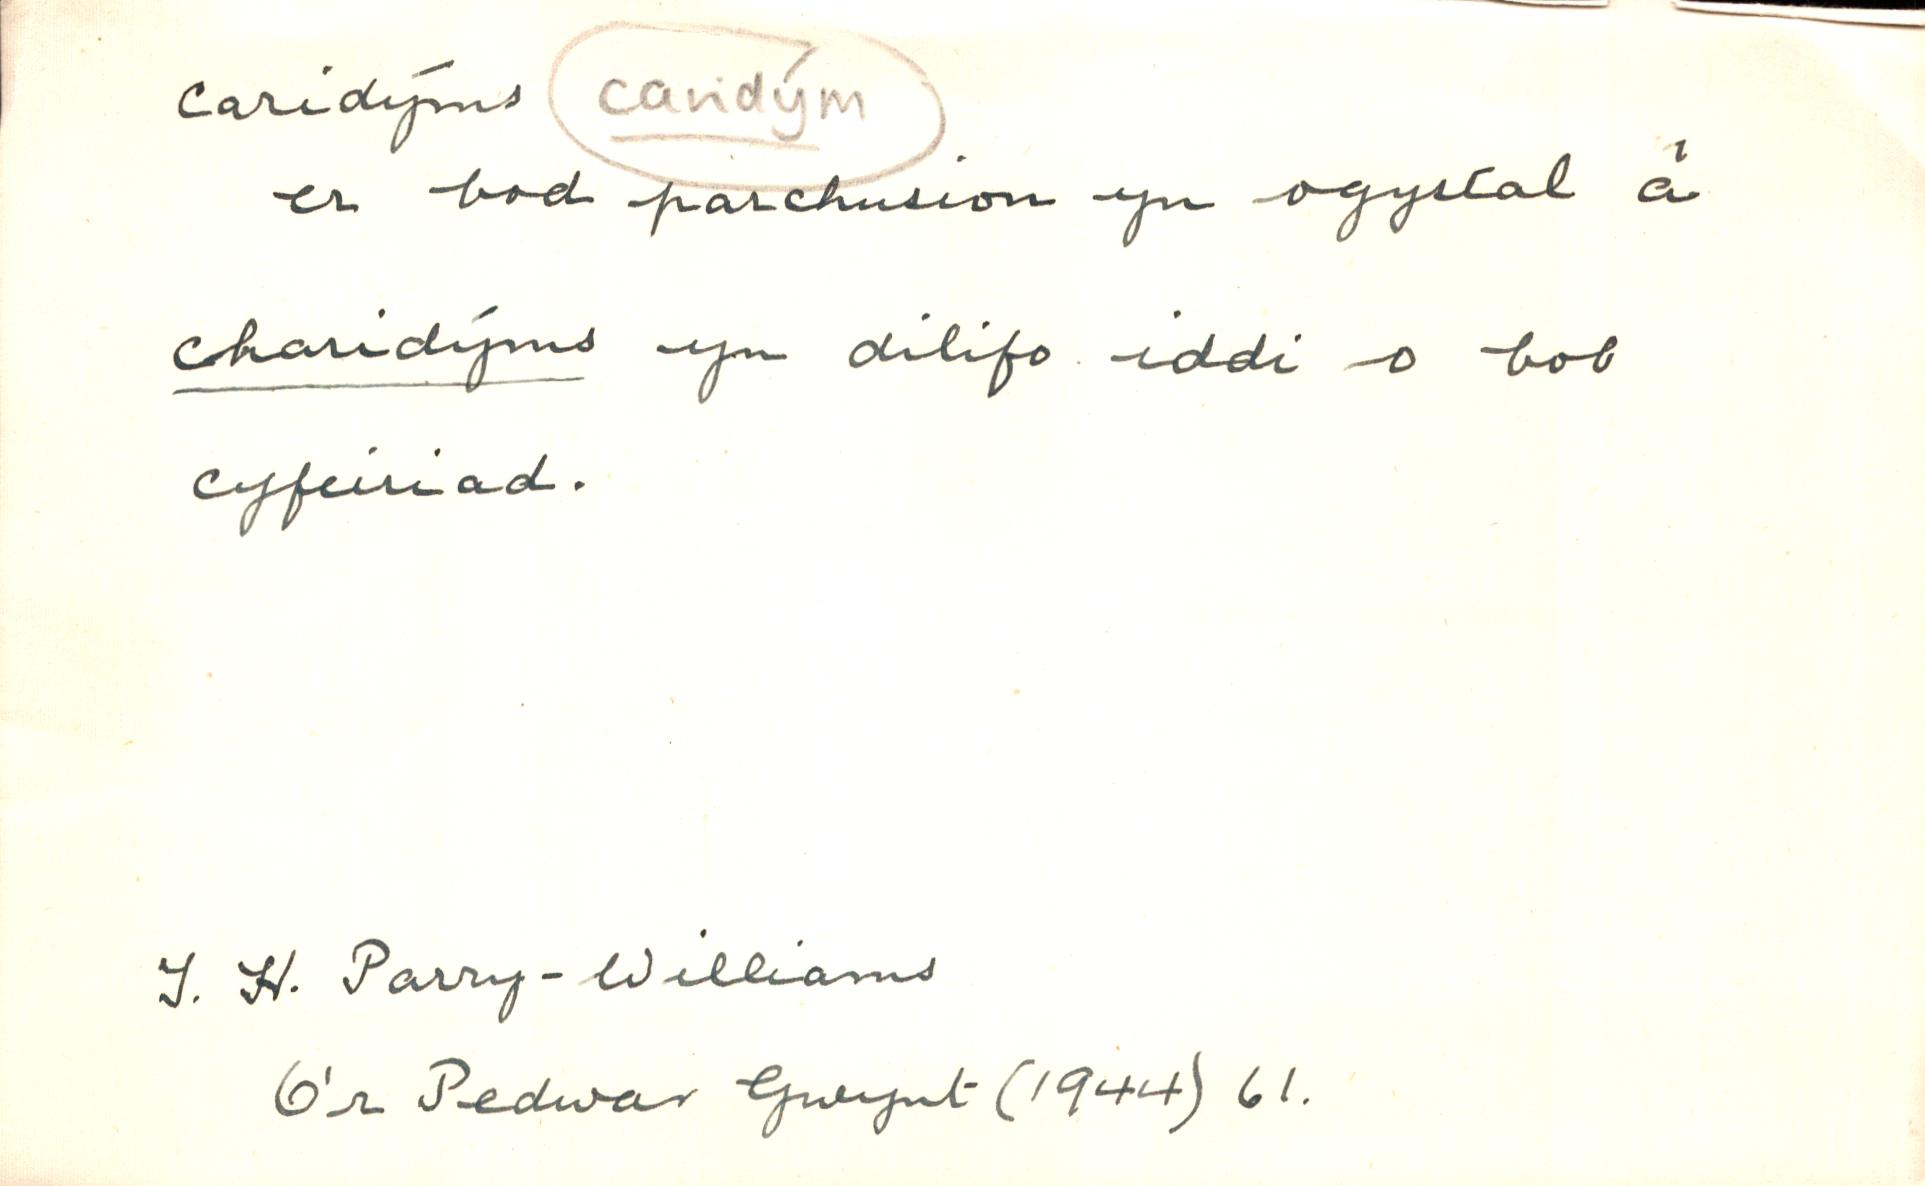 caridýms caridým
er bod parchusion yn ogystal â
charidýms yn dilifo iddi o bob
cyfeiriad.
T. H. Parry-Williams
O'r Pedwar Gwynt (1944) 61.